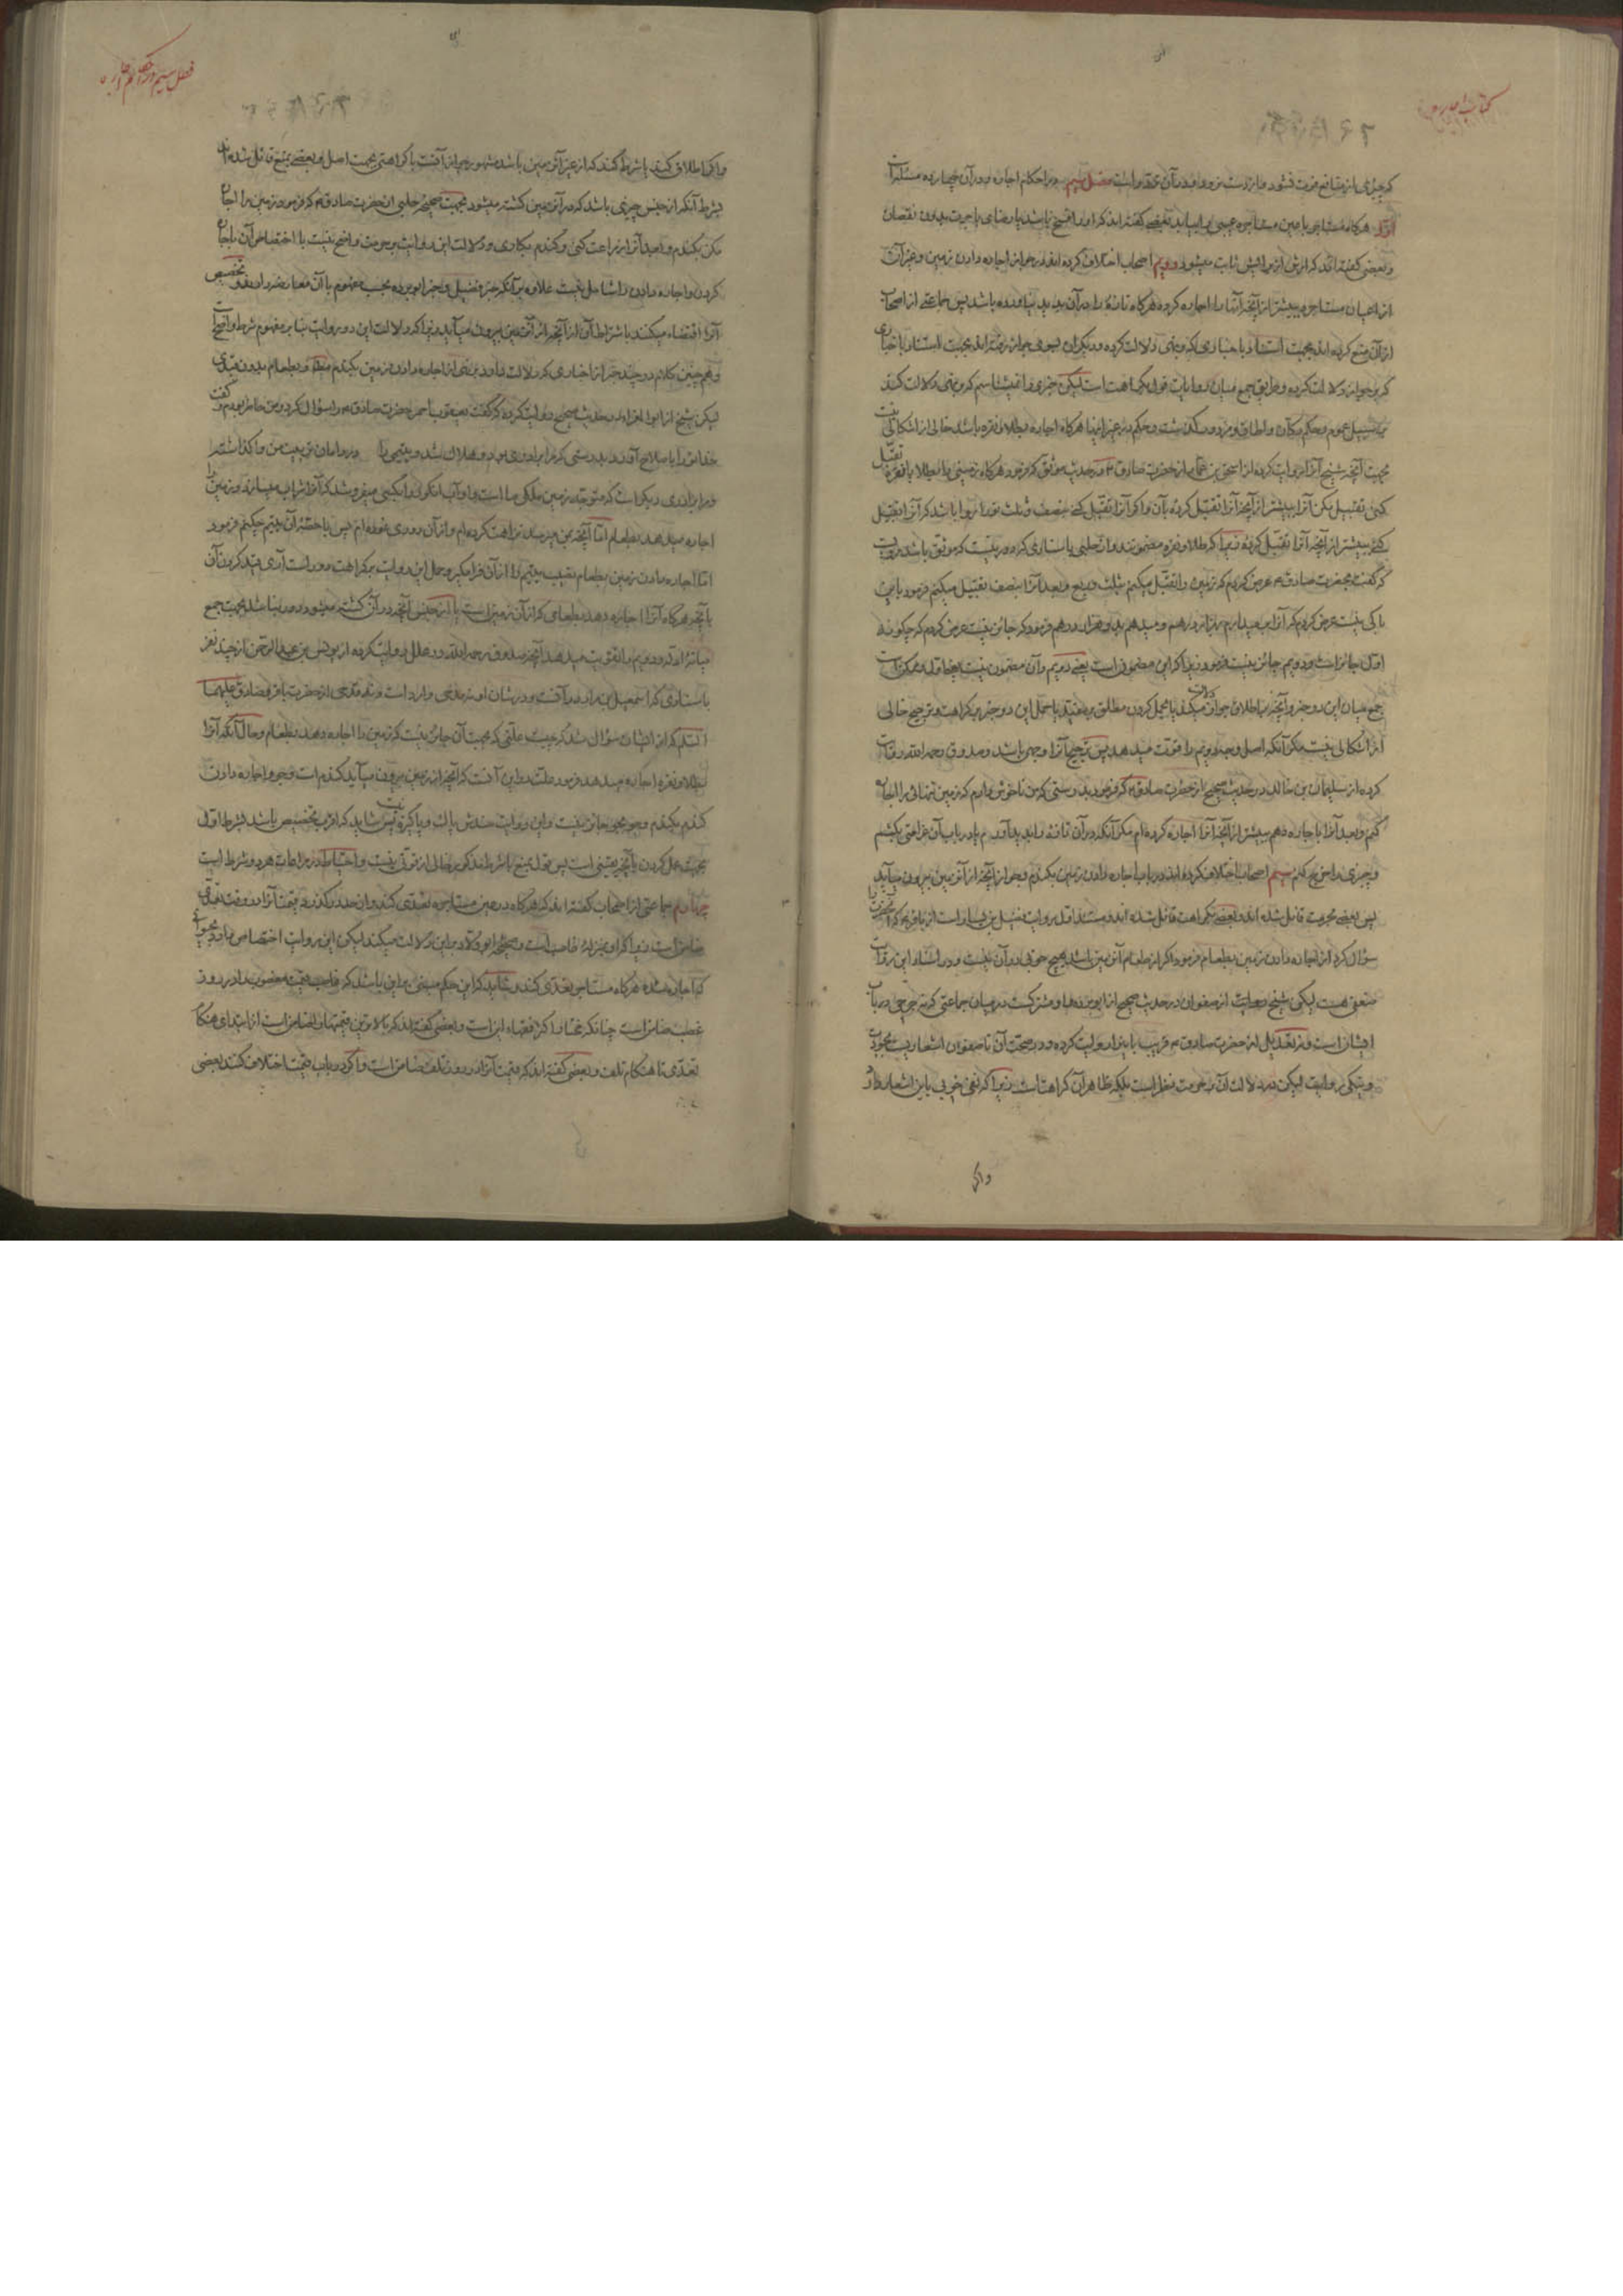 کتاب اجاره
که چیزی از منافع فوت نشود و نازدست نرود و در آن عقد و است فصل سیم در احکام اجاره و در آن چهارده مسئله است
اول هرگاه مستاجر عیبی بیابد بعضی گفته اند که او را فسخ یا رضای باجرت بدون نقصان
و بعضی گفته اند که ارش از برایش ثابت میشود دویم اصحاب اختلاف کرده اند در جواز اجاره دادن زمین و غیر آن
از اعیان مستاجره بیشتر از آنچه آنها را اجاره کرده هرگاه تازهٔ را در آن پدید نیاورده باشد پس جماعتی از اصحاب
از آن منع کرده اند بجهت استناد باخباری که بر منع دلالت کرده و دیگران بسوی جواز رفته اند بجهت استناد باخباری
که بر جواز دلالت کرده و طریق جمع میان روایات قول بکراهت است لیکن خبری را نمیشناسم که بر منع دلالت کند
بر سبیل عموم و حکم دکان و اطاق و مزدور گذشته و حکم در غیر اینها هرگاه اجاره بطلا و نقره باشد خالی از اشکال نیست
بجهت آنچه شیخ آنرا روایت کرده از اسحق بن عمار از حضرت صادق ع در حدیث موثق که فرمود هرگاه زمینی را بطلا یا نقره تقبل
کنی تقبیل مکن آنرا بیشتر از آنچه آنرا تقبل کردهٔ بآن و اگر آنرا تقبل کنی بنصف و ثلث ترا روا باشد که آنرا تقبیل
کنی بیشتر از آنچه آنرا تقبل کردهٔ زیرا که طلا و نقره مضمونند و از حلبی باسنادی که دور نیست که موثق باشد مرویست
که گفت بحضرت صادق ع عرض کردم که زمین را تقبل میکنم بثلث و ربع و بعد آنرا بنصف تقبیل میکنم فرمود باین
باکی نیست عرض کردم که آنرا بهزار درهم و میدهم بدو هزار درهم فرمود که جائز نیست عرض کردم که چگونه
اول جائز است و دویم جائز نیست فرمود زیرا که این مضمونست یعنی دویم و آن مضمون نیست یعنی اول و ممکن است
جمع میان این دو خبر و آنچه باطلاق بر جواز دلالت میکند یا بحمل کردن مطلق بر مقید یا حمل این دو خبر بر کراهت و ترجیح خالی
از اشکالی نیست مگر آنکه اصل وجه دویم را قوت میدهد پس ترجیح آنرا وجهی باشد و صدوق رحمه الله روایت
کرده از سلیمان بن خالد در حدیث صحیح از حضرت صادق ع که فرمود بدرستی که من ناخوش دارم که زمین را اجاره
کنم و بعد آنرا باجاره دهم بیشتر از آنچه آنرا اجاره کرده ام مگر آنکه در آن تازهٔ را پدید آورم یا در باب آن غرامتی بکشم
و چیزی را خرج کنم سیم اصحاب اختلاف کرده اند در باب اجاره دادن زمین بگندم و جو از آنچه از آن زمین بیرون میآید
پس بعضی بحرمت قائل شده اند و بعضی بکراهت قائل شده اند و مستند اول روایت فضیل بن یسار است از باقر ع که آنحضرت را
سؤال کرد از اجاره دادن زمین بطعام فرمود اگر از طعام آن زمین باشد هیچ خوبی در آن نیست و در اسناد این روایت
ضعفی هست لیکن شیخ روایت از صفوان در حدیث صحیح از ابو برده و او مشترکست در میان جماعتی که در باب
ایشان است و نه تعدیل از حضرت صادق ع قریب باین روایت کرده و در صحت آن تا صفوان اشعاریست بخوبی
و نیکی روایت لیکن در دلالت آن بر حرمت نظر است بلکه ظاهر آن کراهت است زیرا که نفی خوبی باین اشعار دارد
و اگر
فصل سیم در احکام اجاره
و اگر اطلاق کنند یا شرط کنند که از غیر آن زمین باشد مشهور جواز آنست با کراهتی بجهت اصل و بعضی بمنع قائل شده اند
بشرط آنکه از جنس چیزی باشد که در آن زمین کشته میشود بجهت صحیحه حلبی از حضرت صادق ع که فرمود زمین را اجاره
مکن بگندم و بعد آنرا زراعت کنی و گندم بکاری و دلالت این روایت بر حرمت واضح نیست با اختصاص آن باجاره
کردن و اجاره دادن را شامل نیست علاوه بر آنکه خبر فضیل و خبر ابو برده بحسب مفهوم با آن معارضه دارند و تخصیص
آنرا اقتضاء میکنند باشتراط آن از آنچه از آن زمین بیرون میآید زیرا که دلالت این دو روایت بنابر مفهوم شرط واضح است
و همچنین کلام در چند خبر از اخباری که دلالت دارند بر نهی از اجاره دادن زمین بگندم مطلقا و بطعام بدون قیدی
لیکن شیخ از ابو المعزا در حدیث صحیح روایت کرده که گفت یعقوب احمر حضرت صادق ع را سؤال کرد و من حاضر بودم و گفت
خدا تو را باصلاح آورد بدرستی که مرا برادری بود و هلاک شد و یتیمی را در دامان تربیت من واگذاشته
و مرا برادری دیگر است که متوجه زمین ملکی ما است و او آب انگور را بکسی میفروشد که آنرا شراب میسازد و زمین را
اجاره میدهد بطعام اما آنچه بمن میرسد تنزه کرده ام و از آن دوری نموده ام پس با حصهٔ آن یتیم چکنم فرمود
اما اجاره دادن زمین بطعام نصیب یتیم را از آن فرامگیر و حمل این روایت بر کراهت دور است آری قید کردن آن
بآنچه هرگاه آنرا اجاره دهد بطعامی که از آن زمین است یا از جنس آنچه در آن کشته میشود دور نباشد بجهت جمع
میانهٔ ادله و دویم را تقویت میدهد آنچه صدوق رحمه الله در علل روایت کرده از یونس بن عبدالرحمن از چند نفر
باسنادی که اسمعیل بن مرار در آنست و در شان او نه مدحی وارد است و نه قدحی از حضرت باقر و صادق علیهما
السلام که از ایشان سؤال شد که چیست علتی که بجهت آن جائز نیست که زمین را اجاره دهد بطعام و حال آنکه آنرا
بطلا و نقره اجاره میدهد فرمود علت در این آنست که آنچه از زمین بیرون میآید گندم است و جو و اجاره دادن
گندم بگندم و جو بجو جائز نیست و این روایت حسنش پاک و پاکیزه نیست پس شاید که اقرب تخصیص باشد بشرط اول
بجهت عمل کردن بآنچه یقینی است پس قول بمنع با شرط مذکور خالی از قوتی نیست و احتیاط در مراعات هر دو شرط است
چهارم جماعتی از اصحاب گفته اند که هرگاه در عین مستاجره تعدی کند و از حد درگذرد قیمت آنرا در وقت تعدی
ضامن است زیرا که او بمنزلهٔ غاصب است و صحیحه ابو ولاد بر این دلالت میکند لیکن این روایت اختصاص دارد بحیوانی
که اجاره شده هرگاه مستاجر تعدی کند و شاید که این حکم مبنی بر این باشد که غاصب قیمت مغصوب را در روز
غصب ضامن است چنانکه مختار اکثر فقهاء این است و بعضی گفته اند که بالاترین قیمتها را ضامن است از ابتدای هنگام
تعدی تا هنگام تلف و بعضی گفته اند که قیمت آنرا در روز تلف ضامن است و اگر در باب قیمت اختلاف کنند بعضی